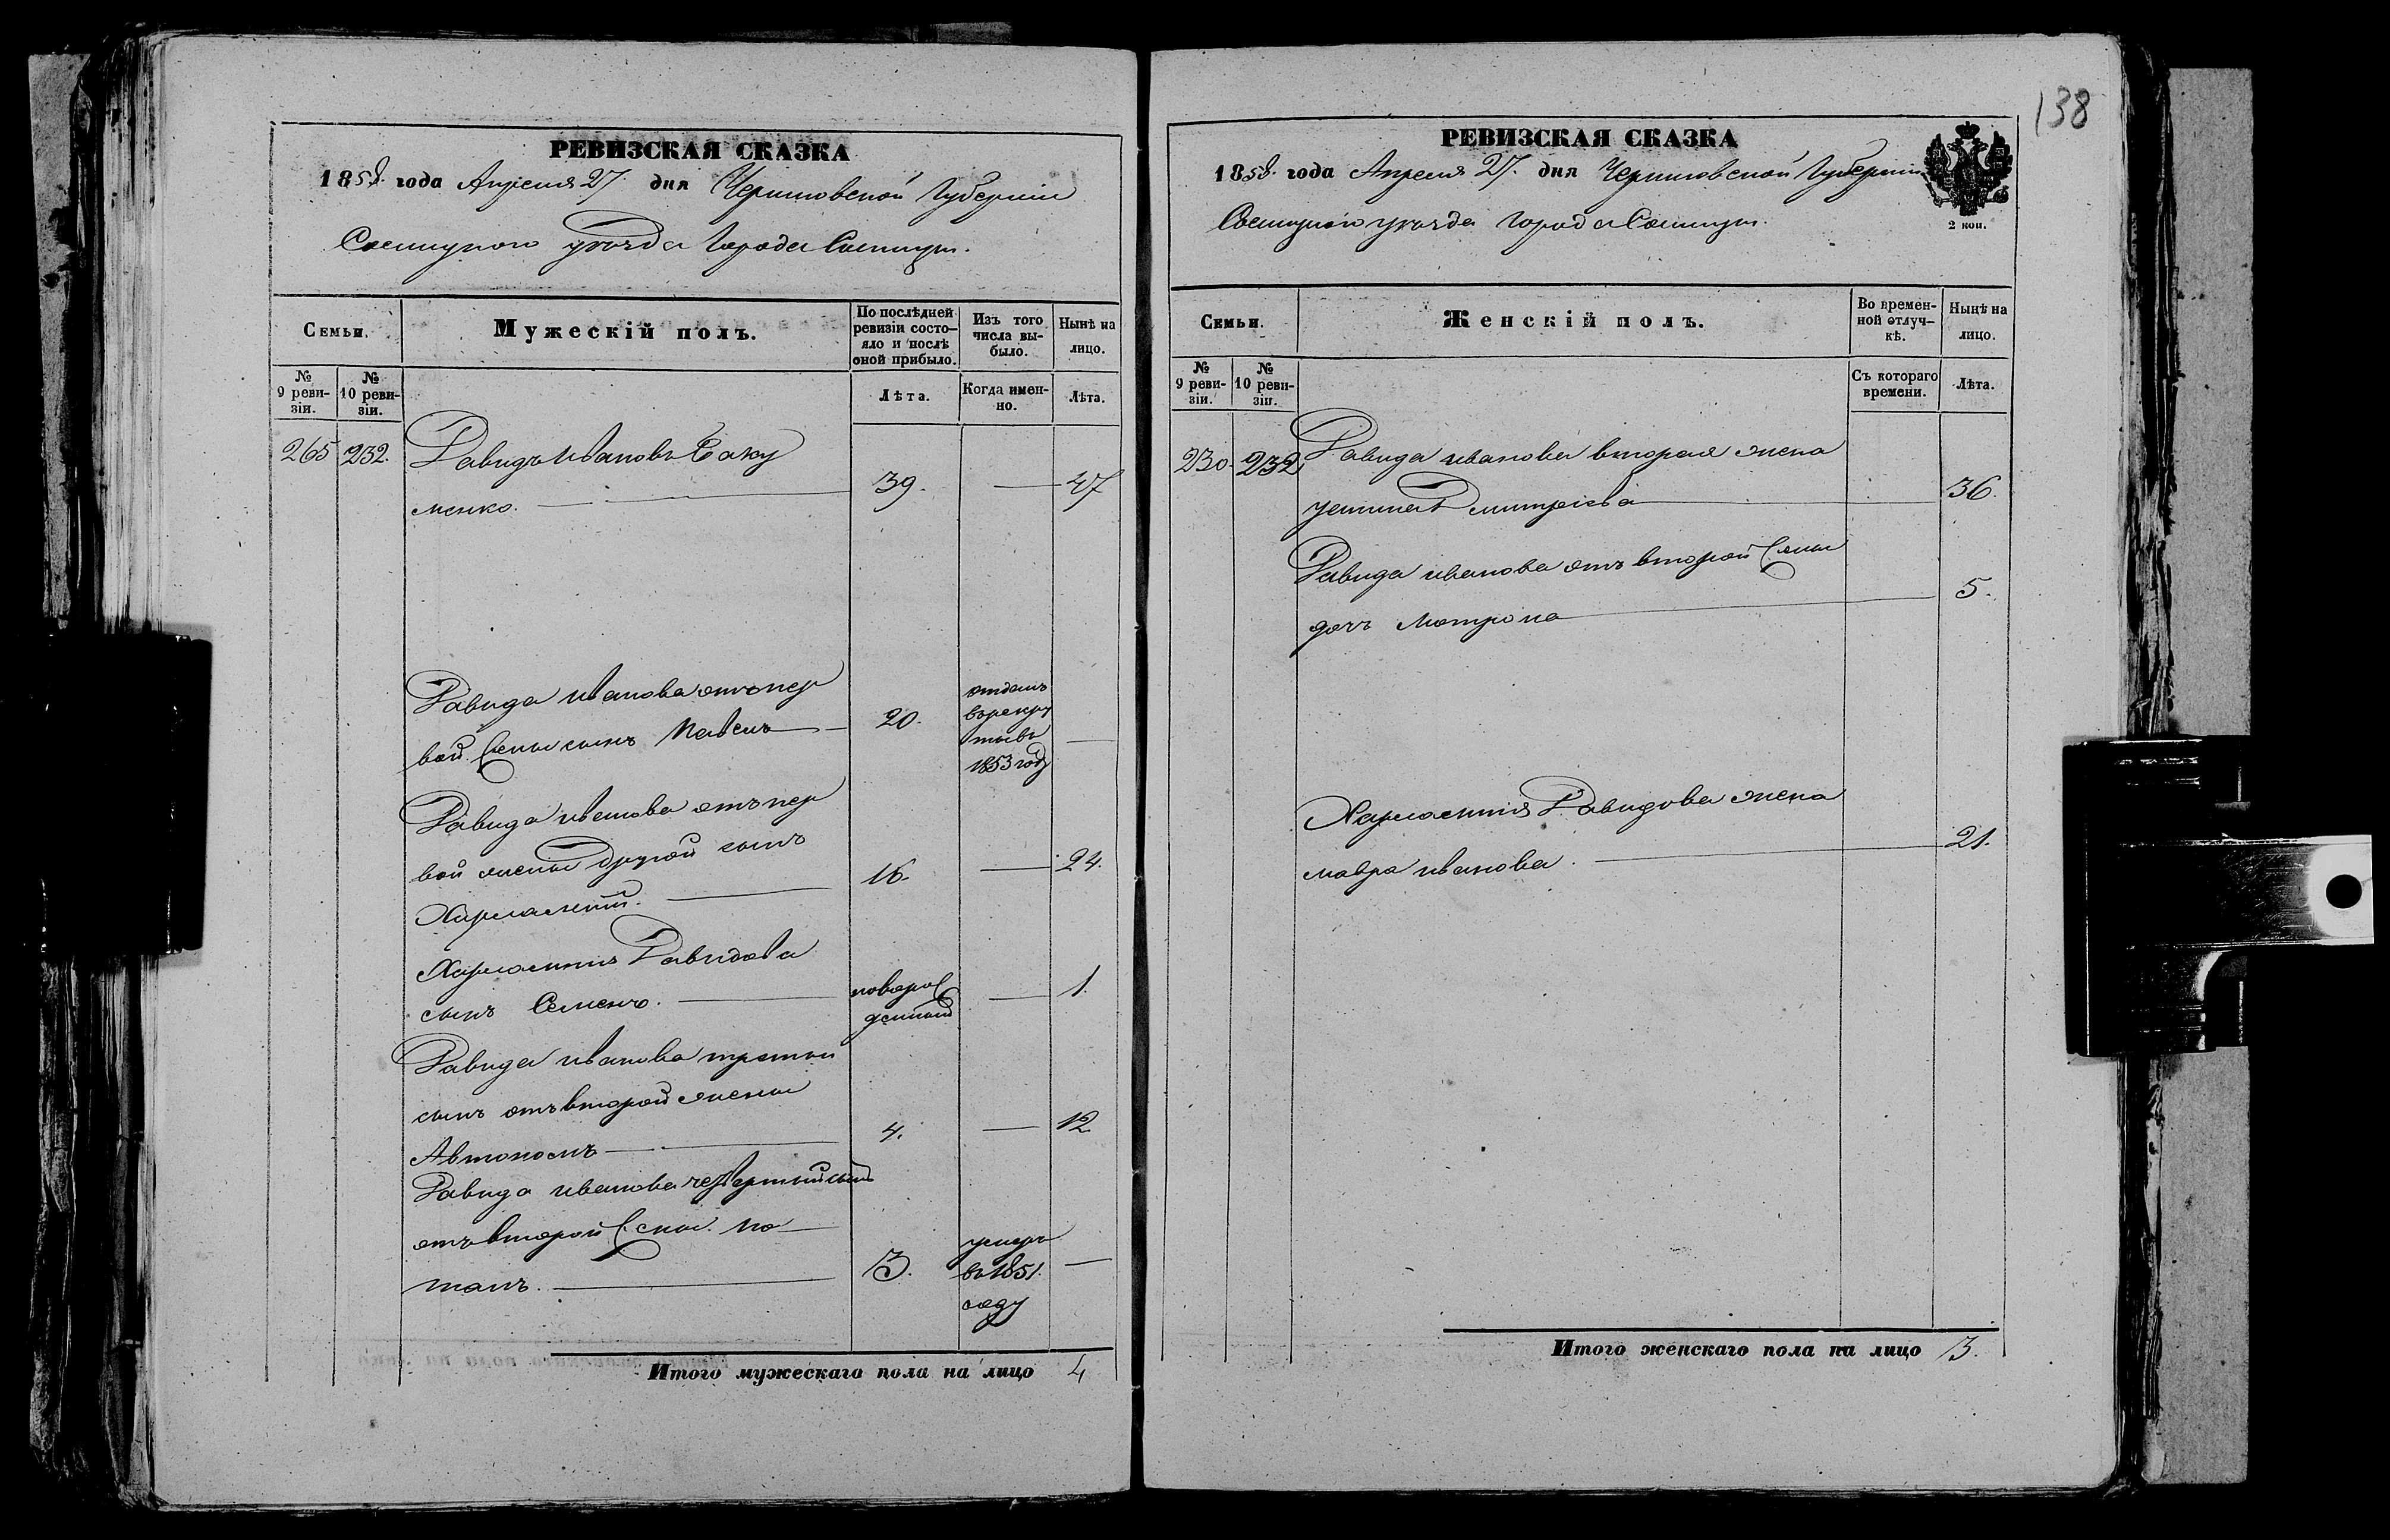 138
РЕВИЗСКАЯ СКАЗКА
1858. года Апреля 27. дня Черниговской Губерніи
Сосницкого уезда города Сосницы.
Семьи.
Мужескій полъ.
По послѣдней
ревизіи состо-
яло и послѣ
оной прибыло.
Изъ того
числа вы-
было.
Нынѣ на
лицо.
№
9 реви-
зіи.
№
10 реви-
зіи.
Лѣта.
Когда имен-
но.
Лѣта.
265 232. Давидъ Ивановъ
менко. 39. 47
Давида Иванова отъ пер
вой жены сынъ Павелъ 20.
отданъ
въ рекру
ты въ
1853 году
Давида Иванова отъ пер
вой жены другой сынъ
Харлампій. 16. 24.
Харлампія Давидова
сынъ Семенъ. новорож
денный 1.
Давида Иванова третій
сынъ отъ второй жены
Автономъ 4. 12
Давида Иванова четвертый сынъ
отъ второй жены По
тапъ. 3.
умеръ
въ 1851.
году
Итого мужескаго пола на лицо 4
РЕВИЗСКАЯ СКАЗКА
1858. года Апреля 27. дня Черниговской Губерніи
Сосницкого уезда города Сосницы.
2 коп.
Семьи.
Женскій полъ.
Во времен-
ной отлуч-
кѣ.
Нынѣ на
лицо.
№
9 реви-
зіи.
№
10 реви-
зіи.
Съ котораго
времени.
Лѣта.
230. 232 Давида Иванова вторая жена
Устинья Дмитріева 36.
Давида Иванова отъ второй жены
дочь Мотрона 5.
Харлампія Давидова жена
Мавра Иванова. 21.
Итого женскаго пола на лицо 3.